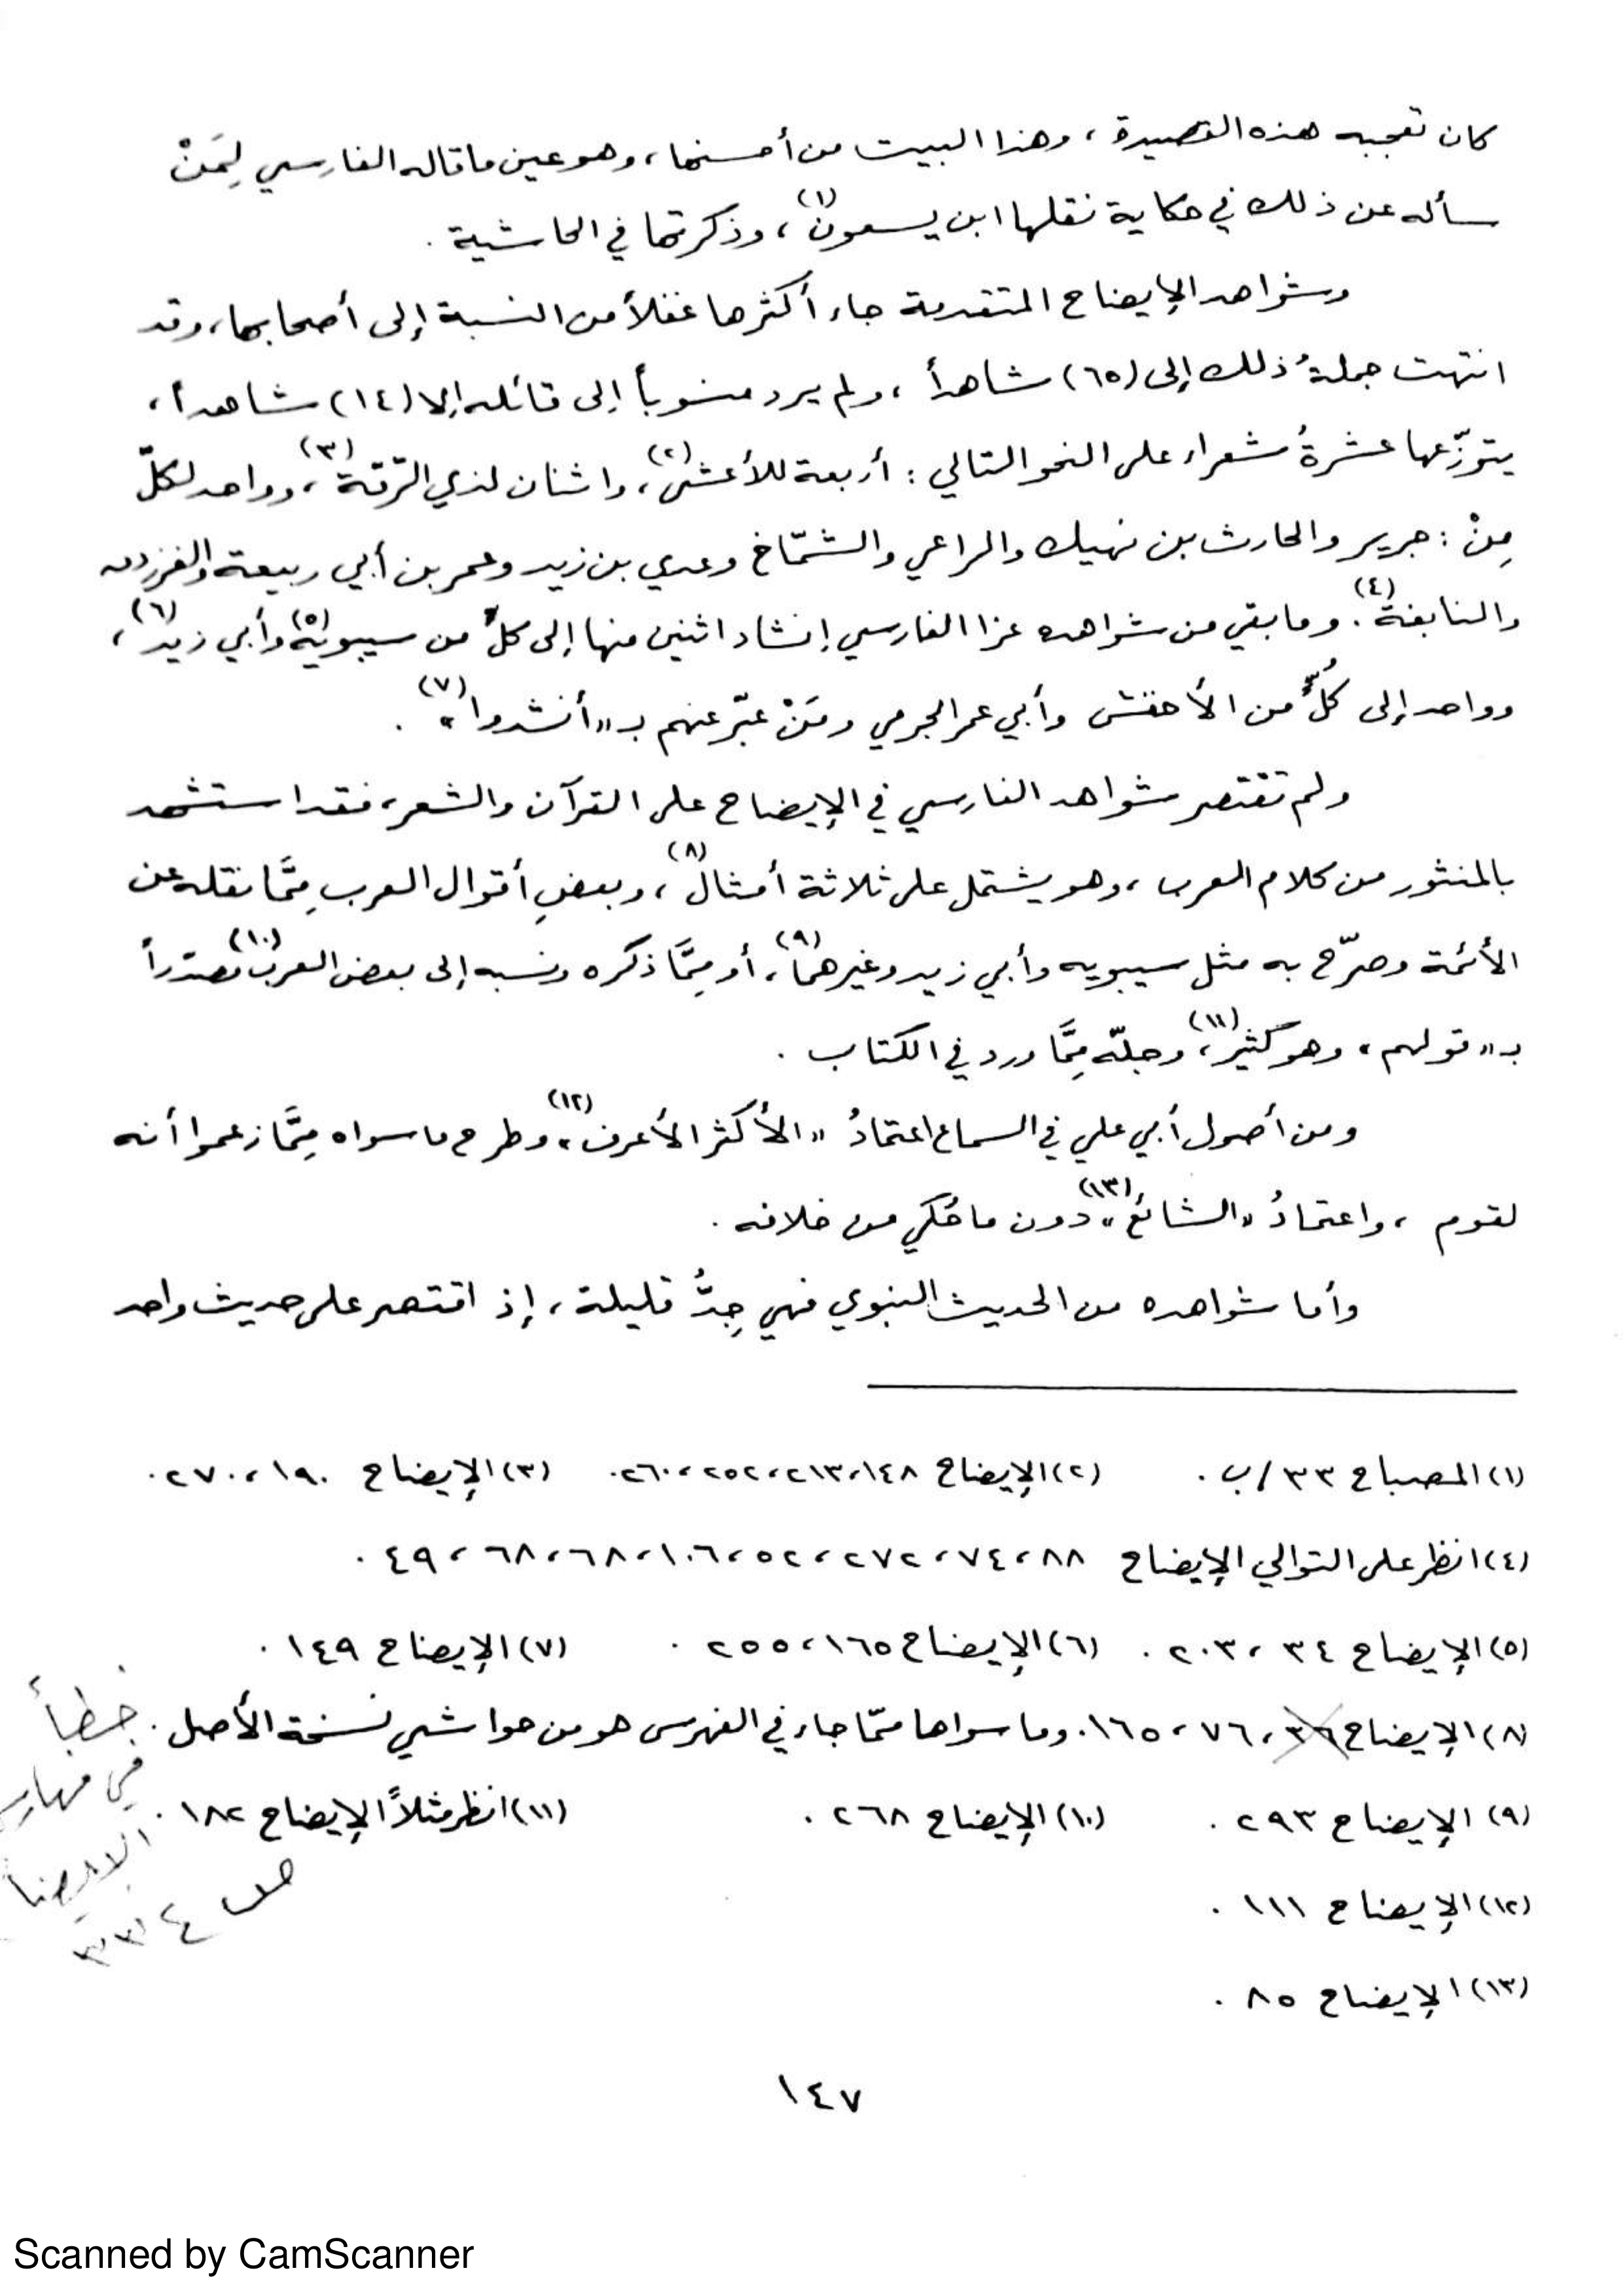 كان تعجبه هذه القصيدة ، وهذا البيت من أحسنها ، وهو عين ما قاله الفارسي لِمَنْ
سأله عن ذلك في حكاية نقلها ابن يسعون(١) ، وذكرتها في الحاشية .
وشواهد الإيضاح المتقدمة جاء أكثرها غفلاً من النسبة إلى أصحابها ، وقد
انتهت جملةُ ذلك إلى (٦٥) شاهداً ، ولم يرد منسوباً إلى قائله إلا (١٤) شاهداً ،
يتوزّعها عشرةُ شعراء على النحو التالي : أربعة للأعشى(٢) ، واثنان لذي الرّمّة(٣) ، وواحد لكلّ
مِنْ : جرير والحارث بن نهيك والراعي والشمّاخ وعدي بن زيد وعمر بن أبي ربيعة والفرزدق
والنابغة(٤) . وما بقي من شواهده عزا الفارسي إنشاد اثنين منها إلى كلٍّ من سيبويه(٥) وأبي زيد(٦) ،
وواحد إلى كُلٍّ من الأخفش وأبي عمر الجرمي ومَنْ عبّر عنهم بـ « أنشدوا »(٧) .
ولم تقتصر شواهد الفارسي في الإيضاح على القرآن والشعر ، فقد استشهد
بالمنثور من كلام العرب ، وهو يشتمل على ثلاثة أمثال(٨) ، وبعضِ أقوال العرب مِمَّا نقله عن
الأئمة وصرّح به مثل سيبويه وأبي زيد وغيرهما(٩) ، أو مِمَّا ذكره ونسبه إلى بعض العرب(١٠) مصدّراً
بـ « قولهم » وهو كثير(١١) ، وجلّه مِمَّا ورد في الكتاب .
ومن أصول أبي علي في السماع اعتمادُ « الأكثر الأعرف »(١٢) وطرح ما سواه مِمَّا زعموا أنه
لقوم ، واعتمادُ « الشائع »(١٣) دون ما حُكي من خلافه .
وأما شواهده من الحديث النبوي فهي جِدُّ قليلة ، إذ اقتصر على حديث واحد
(١) المصباح ٣٣ / ب . (٢) الإيضاح ١٤٨ ، ٢١٣ ، ٢٥٢ ، ٢٦٠ . (٣) الإيضاح ١٩٠ ، ٢٧٠ .
(٤) انظر على التوالي الإيضاح ٨٨ ، ٧٤ ، ٢٧٢ ، ٥٢ ، ١٠٦ ، ٦٨ ، ٦٨ ، ٤٩ .
(٥) الإيضاح ٣٤ ، ٢٠٣ . (٦) الإيضاح ١٦٥ ، ٢٥٥ . (٧) الإيضاح ١٤٩ .
(٨) الإيضاح ٣٦ ، ٧٦ ، ١٦٥ . وما سواها ممّا جاء في الفهرس هو من حواشي نسخة الأصل . خطأ
في
(٩) الإيضاح ٢٩٣ . (١٠) الإيضاح ٢٦٨ . (١١) انظر مثلاً الإيضاح ١٨٢ .
ص ٣٣٤
(١٢) الإيضاح ١١١ .
(١٣) الإيضاح ٨٥ .
١٤٧
Scanned by CamScanner